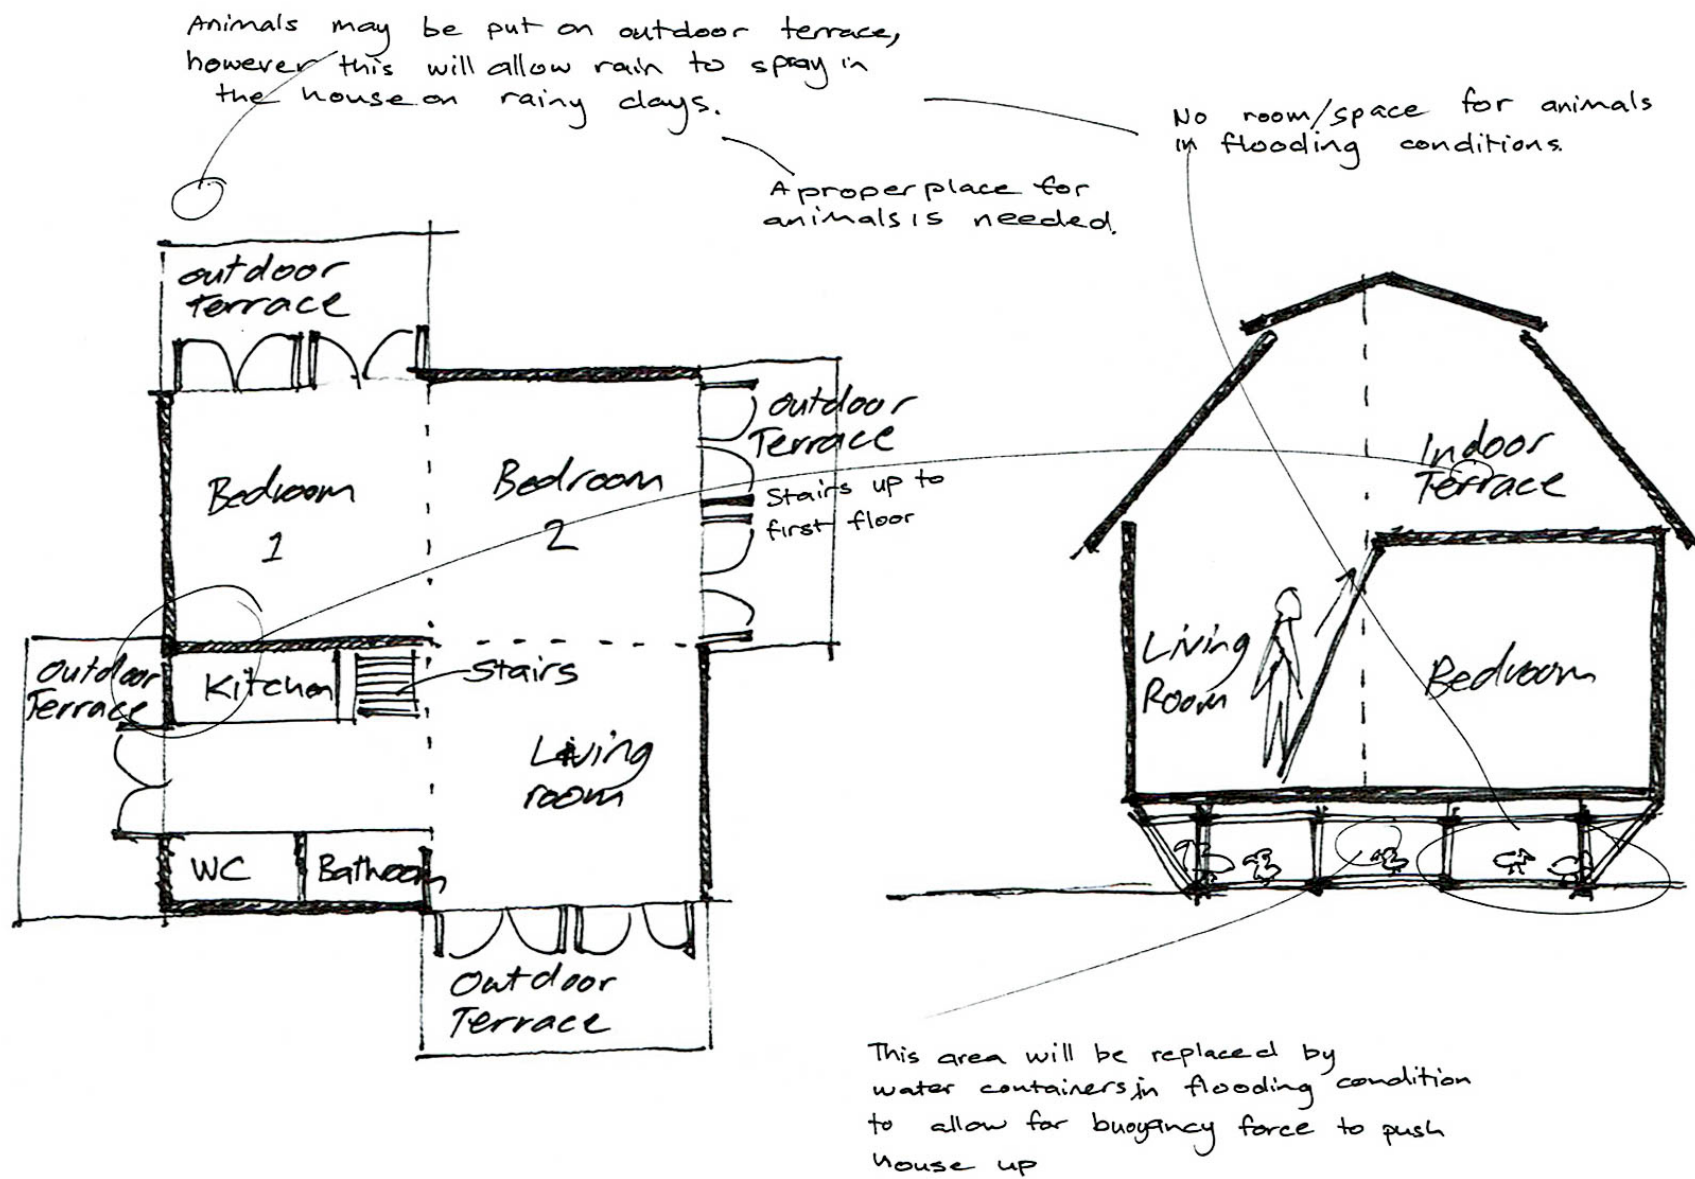 Animals may be put on outdoor terrace,
however this will allow rain to spray in
the house on rainy days.
No room/space for animals
in flooding conditions.
A proper place for
animals is needed.
outdoor
Terrace
outdoor
Terrace
Stairs up to
first floor
Bedroom
1
Bedroom
2
Outdoor
Terrace
Kitchen
Stairs
Living
room
WC
Bathroom
Outdoor
Terrace
Indoor
Terrace
Living
Room
Bedroom
This area will be replaced by
water containers, in flooding condition
to allow for buoyancy force to push
house up